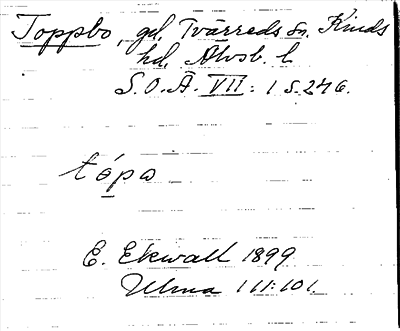 Toppbo, gd, Tvärreds sn. Kinds
hd, Älvsb. l.
S.O.Ä. VII: 1 s. 246.
tópa
E. Ekwall 1899
Ulma 111:101.